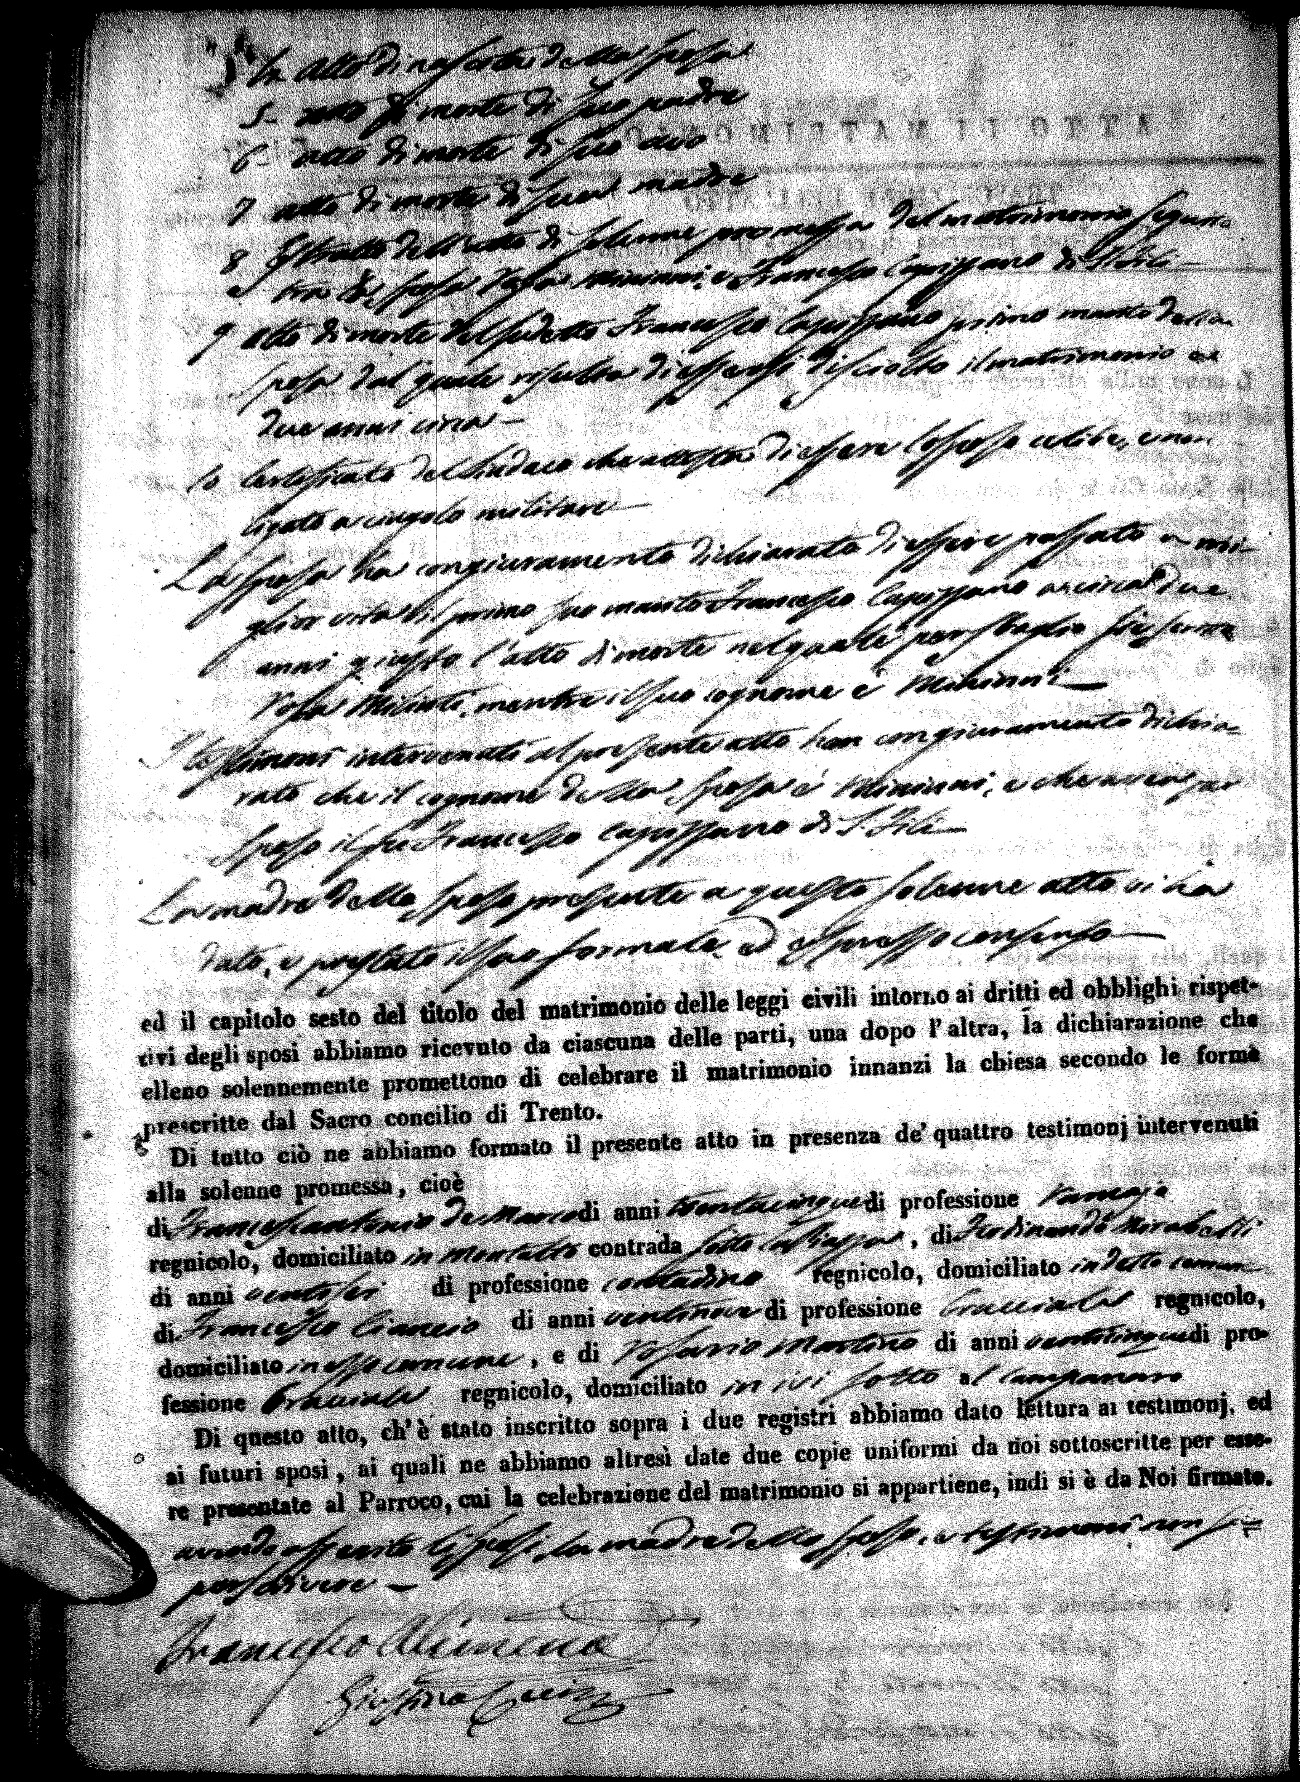 4. Atto di nascita della sposa
5. atto di morte di suo padre
6. atto di morte di suo avo
7 atto di morte di sua madre
8 Estratto dell'atto di solenne promessa del matrimonio seguita
tra la sposa Rosa Minianni, e Francesco Capizzano di S. Fili
9 Atto di morte del sudetto Francesco Capizzano primo marito della
sposa dal quale risulta di essersi disciolto il matrimonio
due anni circa
10 Certificato del Sindaco che attesta di essere lo sposo celibe, e non
ligato a cingolo militare
La sposa ha con giuramento dichiarato di essere passato a mi-
glior vita il primo suo marito Francesco Capizzano a circa due
anni giusto l'atto di morte nel quale per sbaglio
Rosa mentre il suo cognome è Minianni
I testimoni intervenuti al presente atto han con giuramento dichia-
rato che il cognome della sposa è Minianni, e che aveva per
sposo il fu Francesco Capizzano di S. Fili
La madre dello sposo presente a questo solenne atto vi ha
dato, e prestato il suo formale, ed espresso consenso
ed il capitolo sesto del titolo del matrimonio delle leggi civili intorno ai dritti ed obblighi rispet-
tivi degli sposi abbiamo ricevuto da ciascuna delle parti, una dopo l'altra, la dichiarazione che
elleno solennemente promettono di celebrare il matrimonio innanzi la chiesa secondo le forme
prescritte dal Sacro concilio di Trento.
Di tutto ciò ne abbiamo formato il presente atto in presenza de' quattro testimonj intervenuti
alla solenne promessa, cioè
di Francescantonio de Marco di anni trentacinque di professione
regnicolo, domiciliato in Montalto contrada sotto la Piazza, di Ferdinando Mirabelli
di anni ventisei di professione contadino regnicolo, domiciliato in detto comune
di Francesco Ciancio di anni ventinove di professione Bracciale regnicolo,
domiciliato in esso comune, e di Rosario Martino di anni venticinque di pro-
fessione Bracciale regnicolo, domiciliato in ivi sotto al campanaro
Di questo atto, ch'è stato inscritto sopra i due registri abbiamo dato lettura ai testimonj, ed
ai futuri sposi, ai quali ne abbiamo altresì date due copie uniformi da noi sottoscritte per esse-
re presentate al Parroco, cui la celebrazione del matrimonio si appartiene, indi si è da Noi firmato.
avendo asserito li sposi, la madre dello sposo, e testimoni non sa-
per scrivere
Francesco Alimena